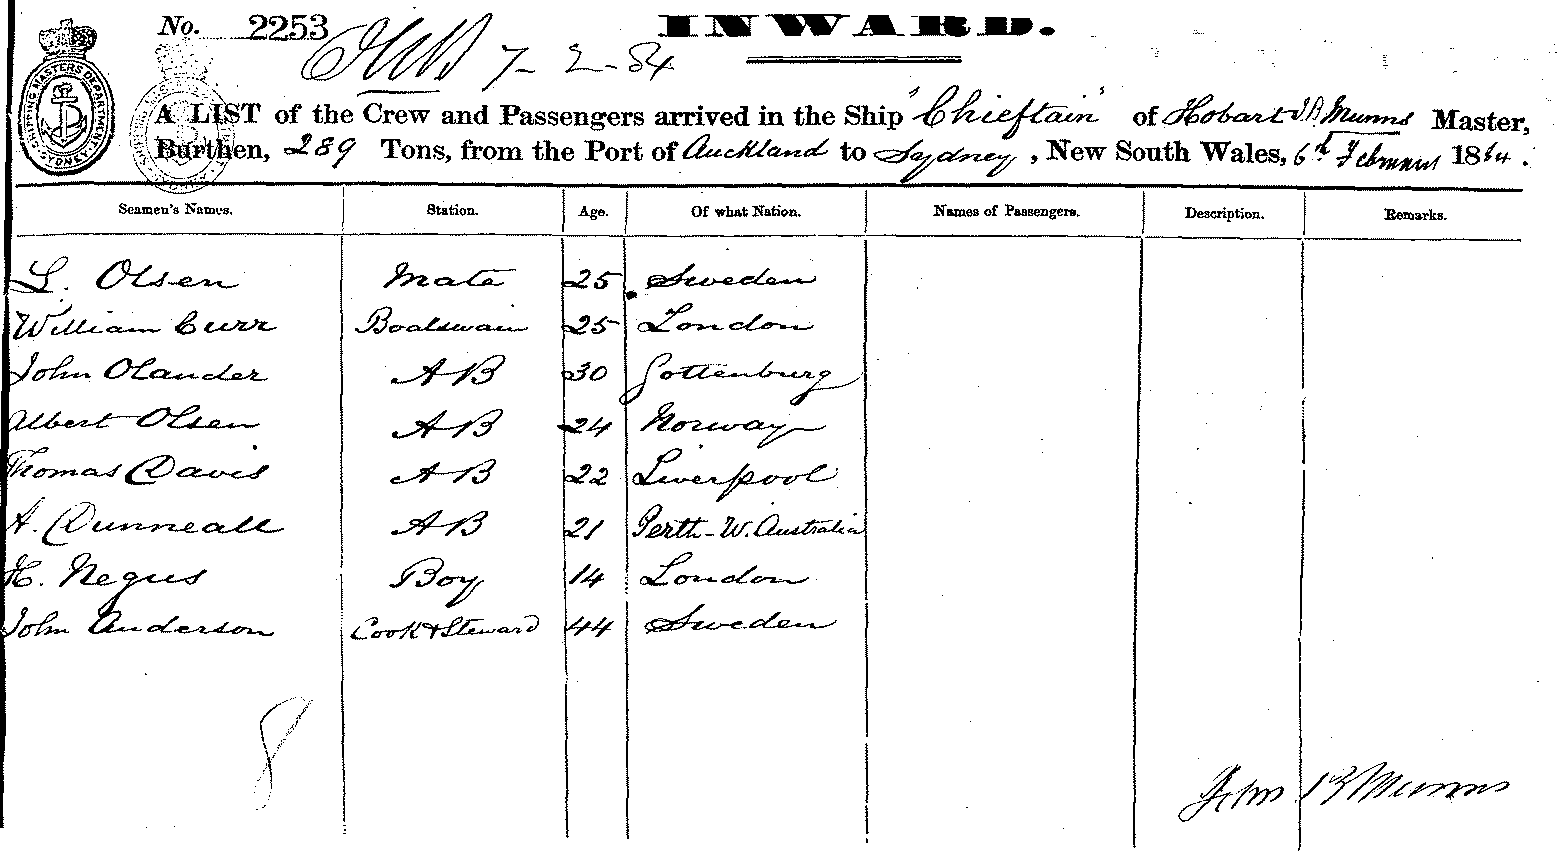 No. 2253 INWARD.
7-2-84
SHIPPING MASTERS DEPARTMENT SYDNEY
A LIST of the Crew and Passengers arrived in the Ship "Chieftain" of Hobart J B Munns Master,
Burthen, 289 Tons, from the Port of Auckland to Sydney, New South Wales, 6th February 1884.
Seamen's Names. Station. Age. Of what Nation. Names of Passengers. Description. Remarks.
L. Olsen Mate 25 Sweden
William Curr Boatswain 25 London
John Olander AB 30 Gottenburg
Albert Olsen AB 24 Norway
Thomas Davis AB 22 Liverpool
A. Dunneall AB 21 Perth-W. Australia
H. Negus Boy 14 London
John Anderson Cook & Steward 44 Sweden
8
John B Munns